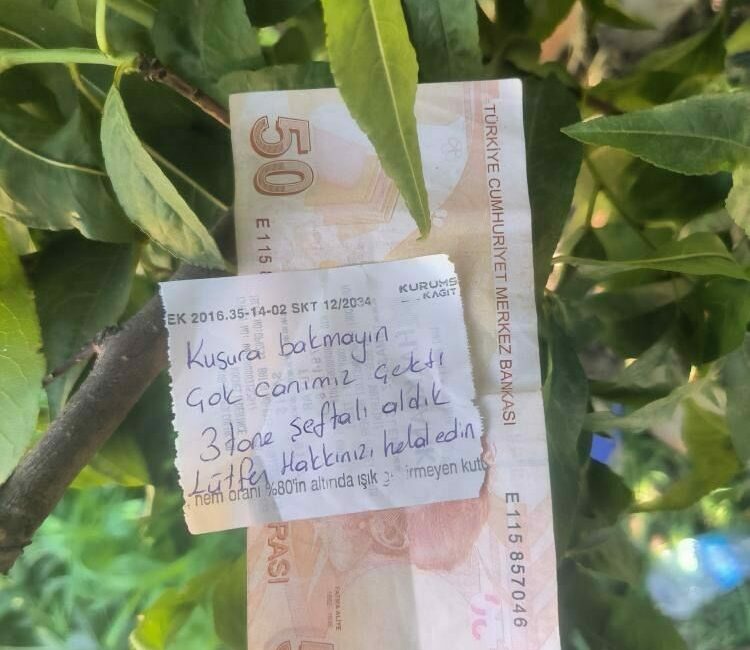 50
TÜRKİYE CUMHURİYET MERKEZ BANKASI
E 115 8
KURUMS
KAĞIT
EK 2016.35-14-02 SKT 12/2034
Kusura bakmayın
Çok canımız çekti
3 tane şeftali aldık
Lütfen Hakkınızı helal edin
nem oranı %80'in altında ışık irmeyen kutu
E 115 857046
RASI
FATMA ALİYE
5